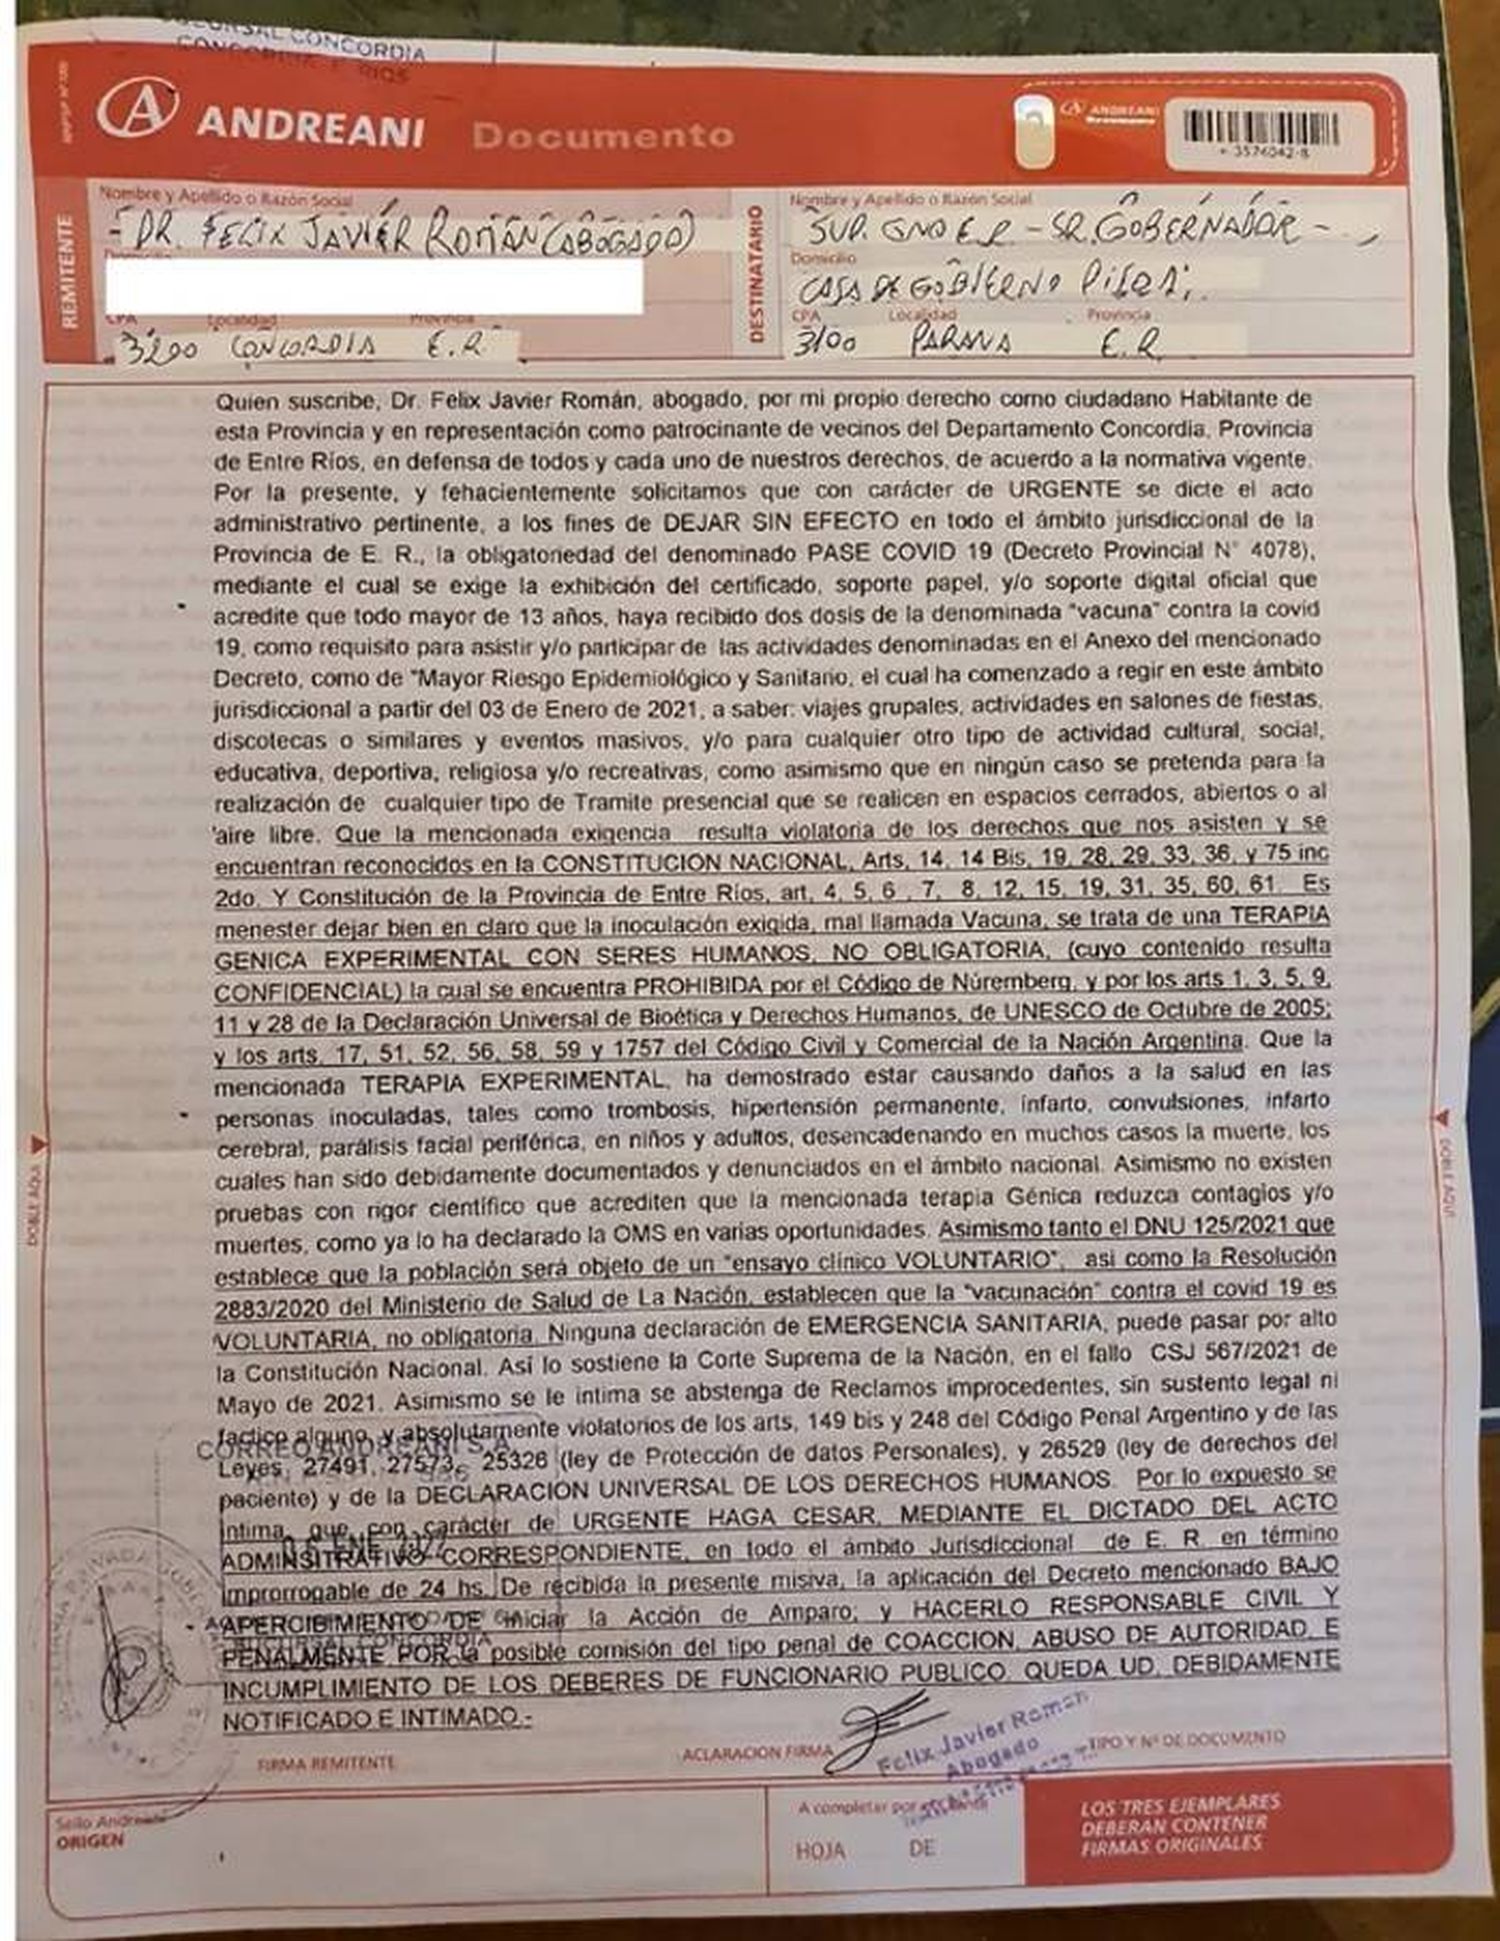 SUCURSAL CONCORDIA
ANDREANI Documento
ANDREANI
+ 3576042-8
REMITENTE
Nombre y Apellido o Razón Social
- DR. FELIX JAVIER ROMÁN (ABOGADO)
CPA Localidad Provincia
3200 CONCORDIA E.R
DESTINATARIO
Nombre y Apellido o Razón Social
SUP. GNO E.R. - SR. GOBERNADOR -
Domicilio
CASA DE GOBIERNO
CPA Localidad Provincia
3100 PARANA E.R.
Quien suscribe, Dr. Felix Javier Román, abogado, por mi propio derecho como ciudadano Habitante de
esta Provincia y en representación como patrocinante de vecinos del Departamento Concordia, Provincia
de Entre Ríos, en defensa de todos y cada uno de nuestros derechos, de acuerdo a la normativa vigente.
Por la presente, y fehacientemente solicitamos que con carácter de URGENTE se dicte el acto
administrativo pertinente, a los fines de DEJAR SIN EFECTO en todo el ámbito jurisdiccional de la
Provincia de E. R., la obligatoriedad del denominado PASE COVID 19 (Decreto Provincial N° 4078),
mediante el cual se exige la exhibición del certificado, soporte papel, y/o soporte digital oficial que
acredite que todo mayor de 13 años, haya recibido dos dosis de la denominada "vacuna" contra la covid
19, como requisito para asistir y/o participar de las actividades denominadas en el Anexo del mencionado
Decreto, como de "Mayor Riesgo Epidemiológico y Sanitario, el cual ha comenzado a regir en este ámbito
jurisdiccional a partir del 03 de Enero de 2021, a saber: viajes grupales, actividades en salones de fiestas,
discotecas o similares y eventos masivos, y/o para cualquier otro tipo de actividad cultural, social,
educativa, deportiva, religiosa y/o recreativas, como asimismo que en ningún caso se pretenda para la
realización de cualquier tipo de Tramite presencial que se realicen en espacios cerrados, abiertos o al
aire libre. Que la mencionada exigencia resulta violatoria de los derechos que nos asisten y se
encuentran reconocidos en la CONSTITUCION NACIONAL, Arts, 14, 14 Bis, 19, 28, 29, 33, 36, y 75 inc
2do. Y Constitución de la Provincia de Entre Ríos, art, 4, 5, 6 , 7, 8, 12, 15, 19, 31, 35, 60, 61. Es
menester dejar bien en claro que la inoculación exigida, mal llamada Vacuna, se trata de una TERAPIA
GENICA EXPERIMENTAL CON SERES HUMANOS, NO OBLIGATORIA, (cuyo contenido resulta
CONFIDENCIAL) la cual se encuentra PROHIBIDA por el Código de Núremberg, y por los arts 1, 3, 5, 9,
11 y 28 de la Declaración Universal de Bioética y Derechos Humanos, de UNESCO de Octubre de 2005;
y los arts. 17, 51, 52, 56, 58, 59 y 1757 del Código Civil y Comercial de la Nación Argentina. Que la
mencionada TERAPIA EXPERIMENTAL, ha demostrado estar causando daños a la salud en las
personas inoculadas, tales como trombosis, hipertensión permanente, infarto, convulsiones, infarto
cerebral, parálisis facial periférica, en niños y adultos, desencadenando en muchos casos la muerte, los
cuales han sido debidamente documentados y denunciados en el ámbito nacional. Asimismo no existen
pruebas con rigor científico que acrediten que la mencionada terapia Génica reduzca contagios y/o
muertes, como ya lo ha declarado la OMS en varias oportunidades. Asimismo tanto el DNU 125/2021 que
establece que la población será objeto de un "ensayo clínico VOLUNTARIO", asi como la Resolución
2883/2020 del Ministerio de Salud de La Nación, establecen que la "vacunación" contra el covid 19 es
VOLUNTARIA, no obligatoria. Ninguna declaración de EMERGENCIA SANITARIA, puede pasar por alto
la Constitución Nacional. Así lo sostiene la Corte Suprema de la Nación, en el fallo CSJ 567/2021 de
Mayo de 2021. Asimismo se le intima se abstenga de Reclamos improcedentes, sin sustento legal ni
factico alguno, y absolutamente violatorios de los arts, 149 bis y 248 del Código Penal Argentino y de las
CORREO ANDREANI S.A.
Leyes, 27491, 27573, 25326 (ley de Protección de datos Personales), y 26529 (ley de derechos del
paciente) y de la DECLARACION UNIVERSAL DE LOS DERECHOS HUMANOS. Por lo expuesto se
íntima, que, con carácter de URGENTE HAGA CESAR, MEDIANTE EL DICTADO DEL ACTO
ADMINSITRATIVO CORRESPONDIENTE, en todo el ámbito Jurisdiccional de E. R. en término
improrrogable de 24 hs. De recibida la presente misiva, la aplicación del Decreto mencionado BAJO
APERCIBIMIENTO DE iniciar la Acción de Amparo; y HACERLO RESPONSABLE CIVIL Y
SUCURSAL CONCORDIA
PENALMENTE POR la posible comisión del tipo penal de COACCION, ABUSO DE AUTORIDAD, E
INCUMPLIMIENTO DE LOS DEBERES DE FUNCIONARIO PUBLICO. QUEDA UD. DEBIDAMENTE
NOTIFICADO E INTIMADO.-
DOBLE AQUI
DOBLE AQUI
FIRMA REMITENTE
ACLARACION FIRMA
TIPO Y Nº DE DOCUMENTO
Felix Javier Roman
Abogado
Sello Andreani
ORIGEN
A completar por
HOJA DE
LOS TRES EJEMPLARES
DEBERAN CONTENER
FIRMAS ORIGINALES